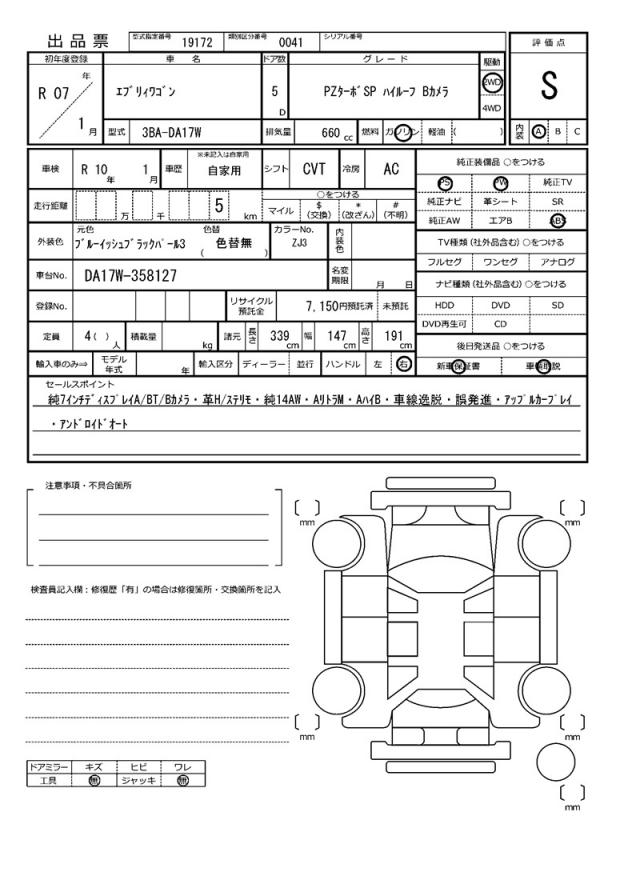 出 品 票 型式指定番号 19172 類別区分番号 0041 シリアル番号
評 価 点
初年度登録 車 名 ドア数 グ レ ー ド 駆動
R 07 年 1 月 ｴﾌﾞﾘｨﾜｺﾞﾝ 5 D PZﾀｰﾎﾞSP ﾊｲﾙｰﾌ Bカメラ 2WD 4WD S
型式 3BA-DA17W 排気量 660 cc 燃料 ガソリン 軽油 ( ) 内装 A B C
車検 R 10 年 1 月 車歴 ※未記入は自家用 自家用 シフト CVT 冷房 AC
純正装備品 ○をつける
PS PW 純正TV
純正ナビ 革シート SR
純正AW エアB ABS
走行距離 万 千 5 km
○をつける
マイル $ (交換) * (改ざん) # (不明)
外装色 元色 ﾌﾞﾙｰｲｯｼｭﾌﾞﾗｯｸﾊﾟｰﾙ3 色替 ( 色替無 ) カラーNo. ZJ3 内装色
TV種類 (社外品含む) ○をつける
フルセグ ワンセグ アナログ
車台No. DA17W-358127 名変期限 月 日
ナビ種類 (社外品含む) ○をつける
登録No. リサイクル預託金 7,150円預託済 未預託
HDD DVD SD
DVD再生可 CD
定員 4( ) 人 積載量 kg 諸元 長さ 339 cm 幅 147 cm 高さ 191 cm
後日発送品 ○をつける
輸入車のみ⇒ モデル年式 年 輸入区分 ディーラー 並行 ハンドル 左 右
新車保証書 車輌取説
セールスポイント
純7ｲﾝﾁﾃﾞｨｽﾌﾟﾚｲA/BT/Bｶﾒﾗ・革H/ｽﾃﾘﾓ・純14AW・AﾘﾄﾗM・AﾊｲB・車線逸脱・誤発進・ｱｯﾌﾟﾙｶｰﾌﾟﾚｲ
・ｱﾝﾄﾞﾛｲﾄﾞｵｰﾄ
注意事項・不具合箇所
検査員記入欄：修復歴「有」の場合は修復箇所・交換箇所を記入
mm
mm
mm
mm
mm
ドアミラー キズ ヒビ ワレ
工具 無 ジャッキ 無